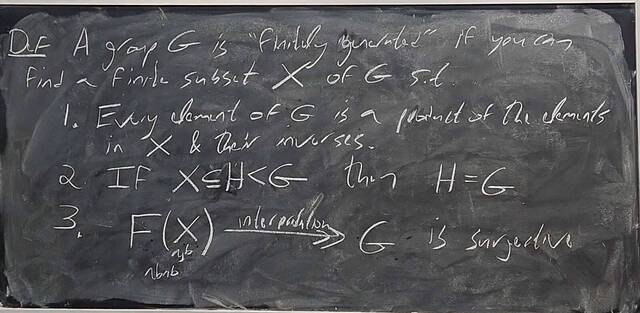 Def A group G is "finitely generated" if you can
find a finite subset X of G s.t.
1. Every element of G is a product of the elements
in X & their inverses.
2. If X ⊆ H < G then H = G
3. F(X) interpretation →→ G is surjective
a,b